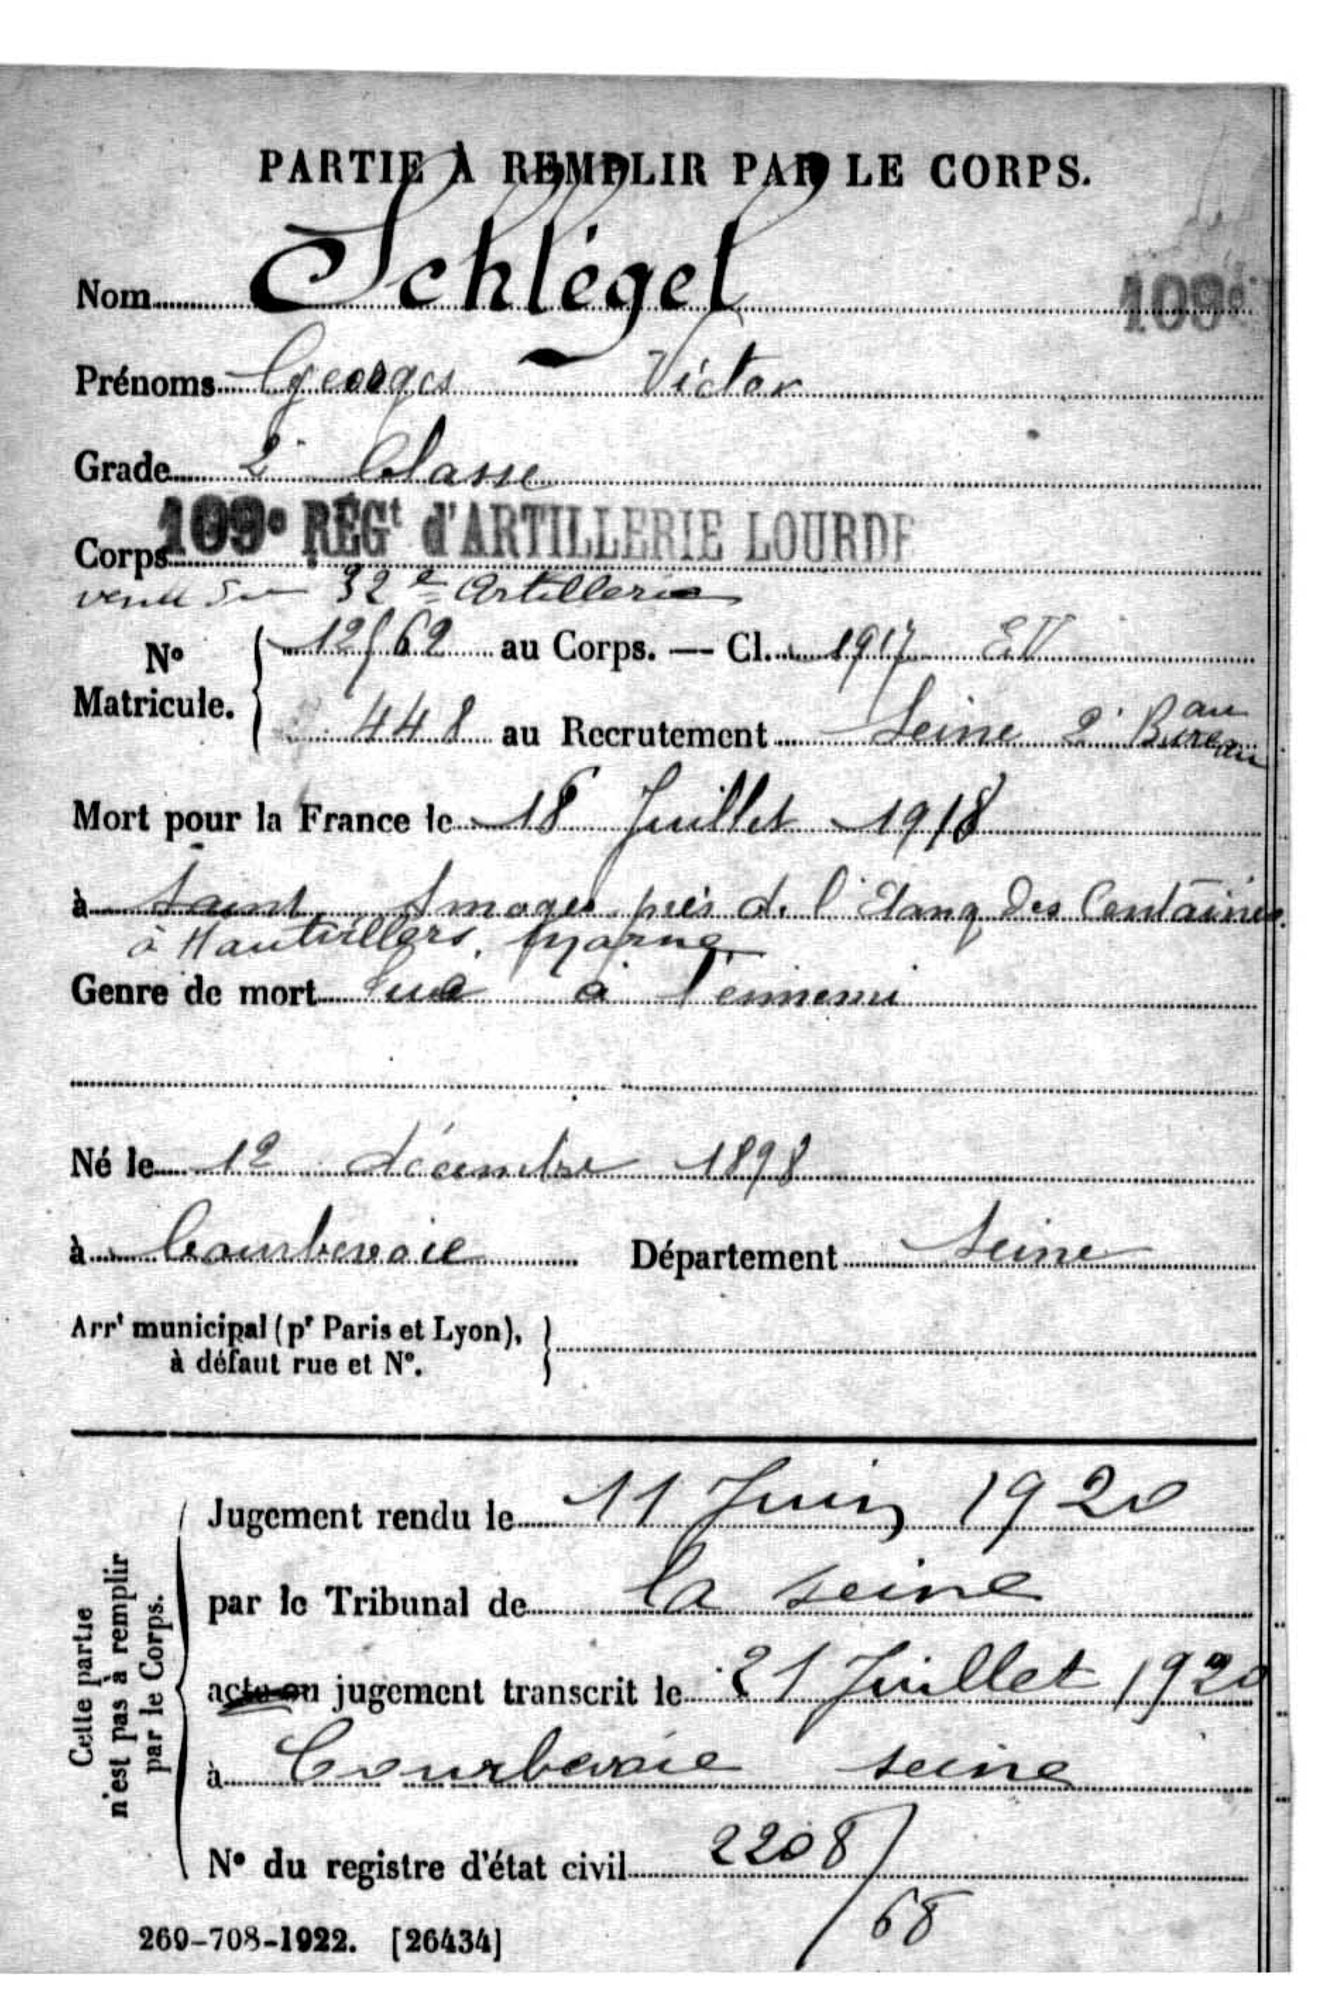 PARTIE À REMPLIR PAR LE CORPS.
Nom Schlégel 109e
Prénoms Georges Victor
Grade 2e Classe
Corps 109e RÉGt d'ARTILLERIE LOURDE
venu du 32e Artillerie
No Matricule. 12/62 au Corps. — Cl. 1917 EV
448 au Recrutement Seine 2e Bureau
Mort pour la France le 18 Juillet 1918
à Saint Imoges près de l'Etang des
à Hautvillers, Marne
Genre de mort tué à l'ennemi
Né le 12 décembre 1898
à Courbevoie Département Seine
Arrt municipal (pr Paris et Lyon),
à défaut rue et No.
Cette partie
n'est pas à remplir
par le Corps.
Jugement rendu le 11 Juin 1920
par le Tribunal de la Seine
acte ou jugement transcrit le 21 Juillet 1920
à Courbevoie Seine
No du registre d'état civil 2208/68
269-708-1922. [26434]